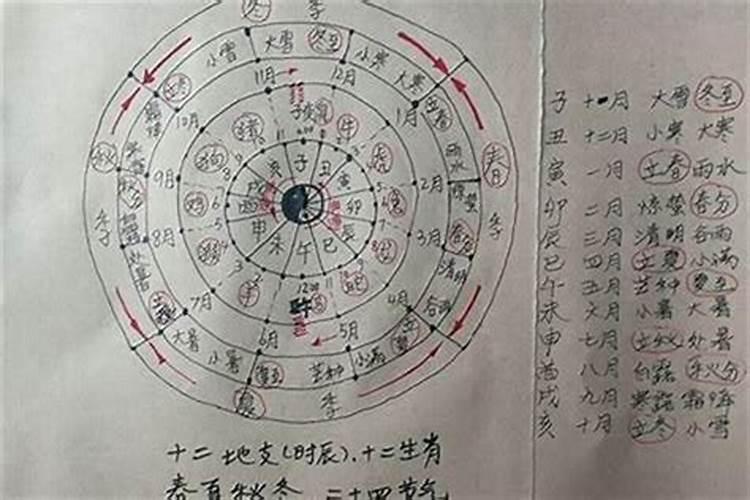 冬 季
小雪 大雪 冬至 小寒 大寒
立冬 立春
11月 12月 1月
10月
雨水
秋 春
9月 2月
惊蛰
秋分 春分
季 季
8月 3月
清明
处暑 谷雨
立秋 7月 4月 立夏
大暑 小暑 6月 5月 小满
夏至 芒种
夏 季
子 丑 寅 卯 辰 巳 午 未 申 酉 戌 亥
猪 牛 虎 兔
狗 鸡 猴 羊 蛇
子 十一月 大雪 冬至
丑 十二月 小寒 大寒
寅 一月 立春 雨水
卯 二月 惊蛰 春分
辰 三月 清明 谷雨
巳 四月 立夏 小满
午 五月 芒种 夏至
未 六月 小暑 大暑
申 七月 立秋 处暑
酉 八月 白露 秋分
戌 九月 寒露 霜降
亥 十月 立冬 小雪
十二地支(时辰)、十二生肖
春夏秋冬 二十四节气